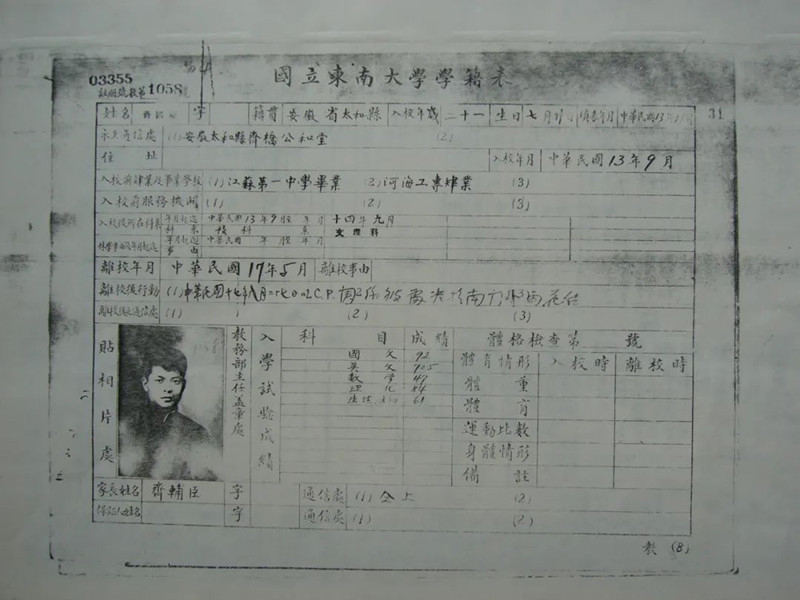 國立東南大學學籍表
03355
註冊號數第1058
姓名 字 籍貫 安徽省太和縣 入校年歲 二十一 生日 七月 填表年月 中華民國13年 月 31
永久通信處 (1) 安徽太和縣齊橋公和堂 (2)
住址 入校年月 中華民國13年9月
入校前肄業及畢業學校 (1) 江蘇第一中學畢業 (2) 河海工專肄業 (3)
入校前服務機關 (1) (2) (3)
入校後所在科系 年月起迄 中華民國13年9月 年 月 十四年九月
科系 預科 系 文理科
年月起迄 中華民國 年 月 年 月
事由
離校年月 中華民國17年5月 離校事由
離校後行動 (1) 中華民國十七年八月 C.P.
(1) (2) (3)
貼相片處
教務部主任蓋章處
入學試驗成績
科目 成績 體格檢查第 號
國文 92
英文
數學 49
理化
體育情形 入校時 離校時
體重
體育
運動比數
身體情形
備註
家長姓名 齊輔臣 字 通信處 (1) 仝上 (2)
保證人姓名 字 通信處 (1) (2)
教 (8)